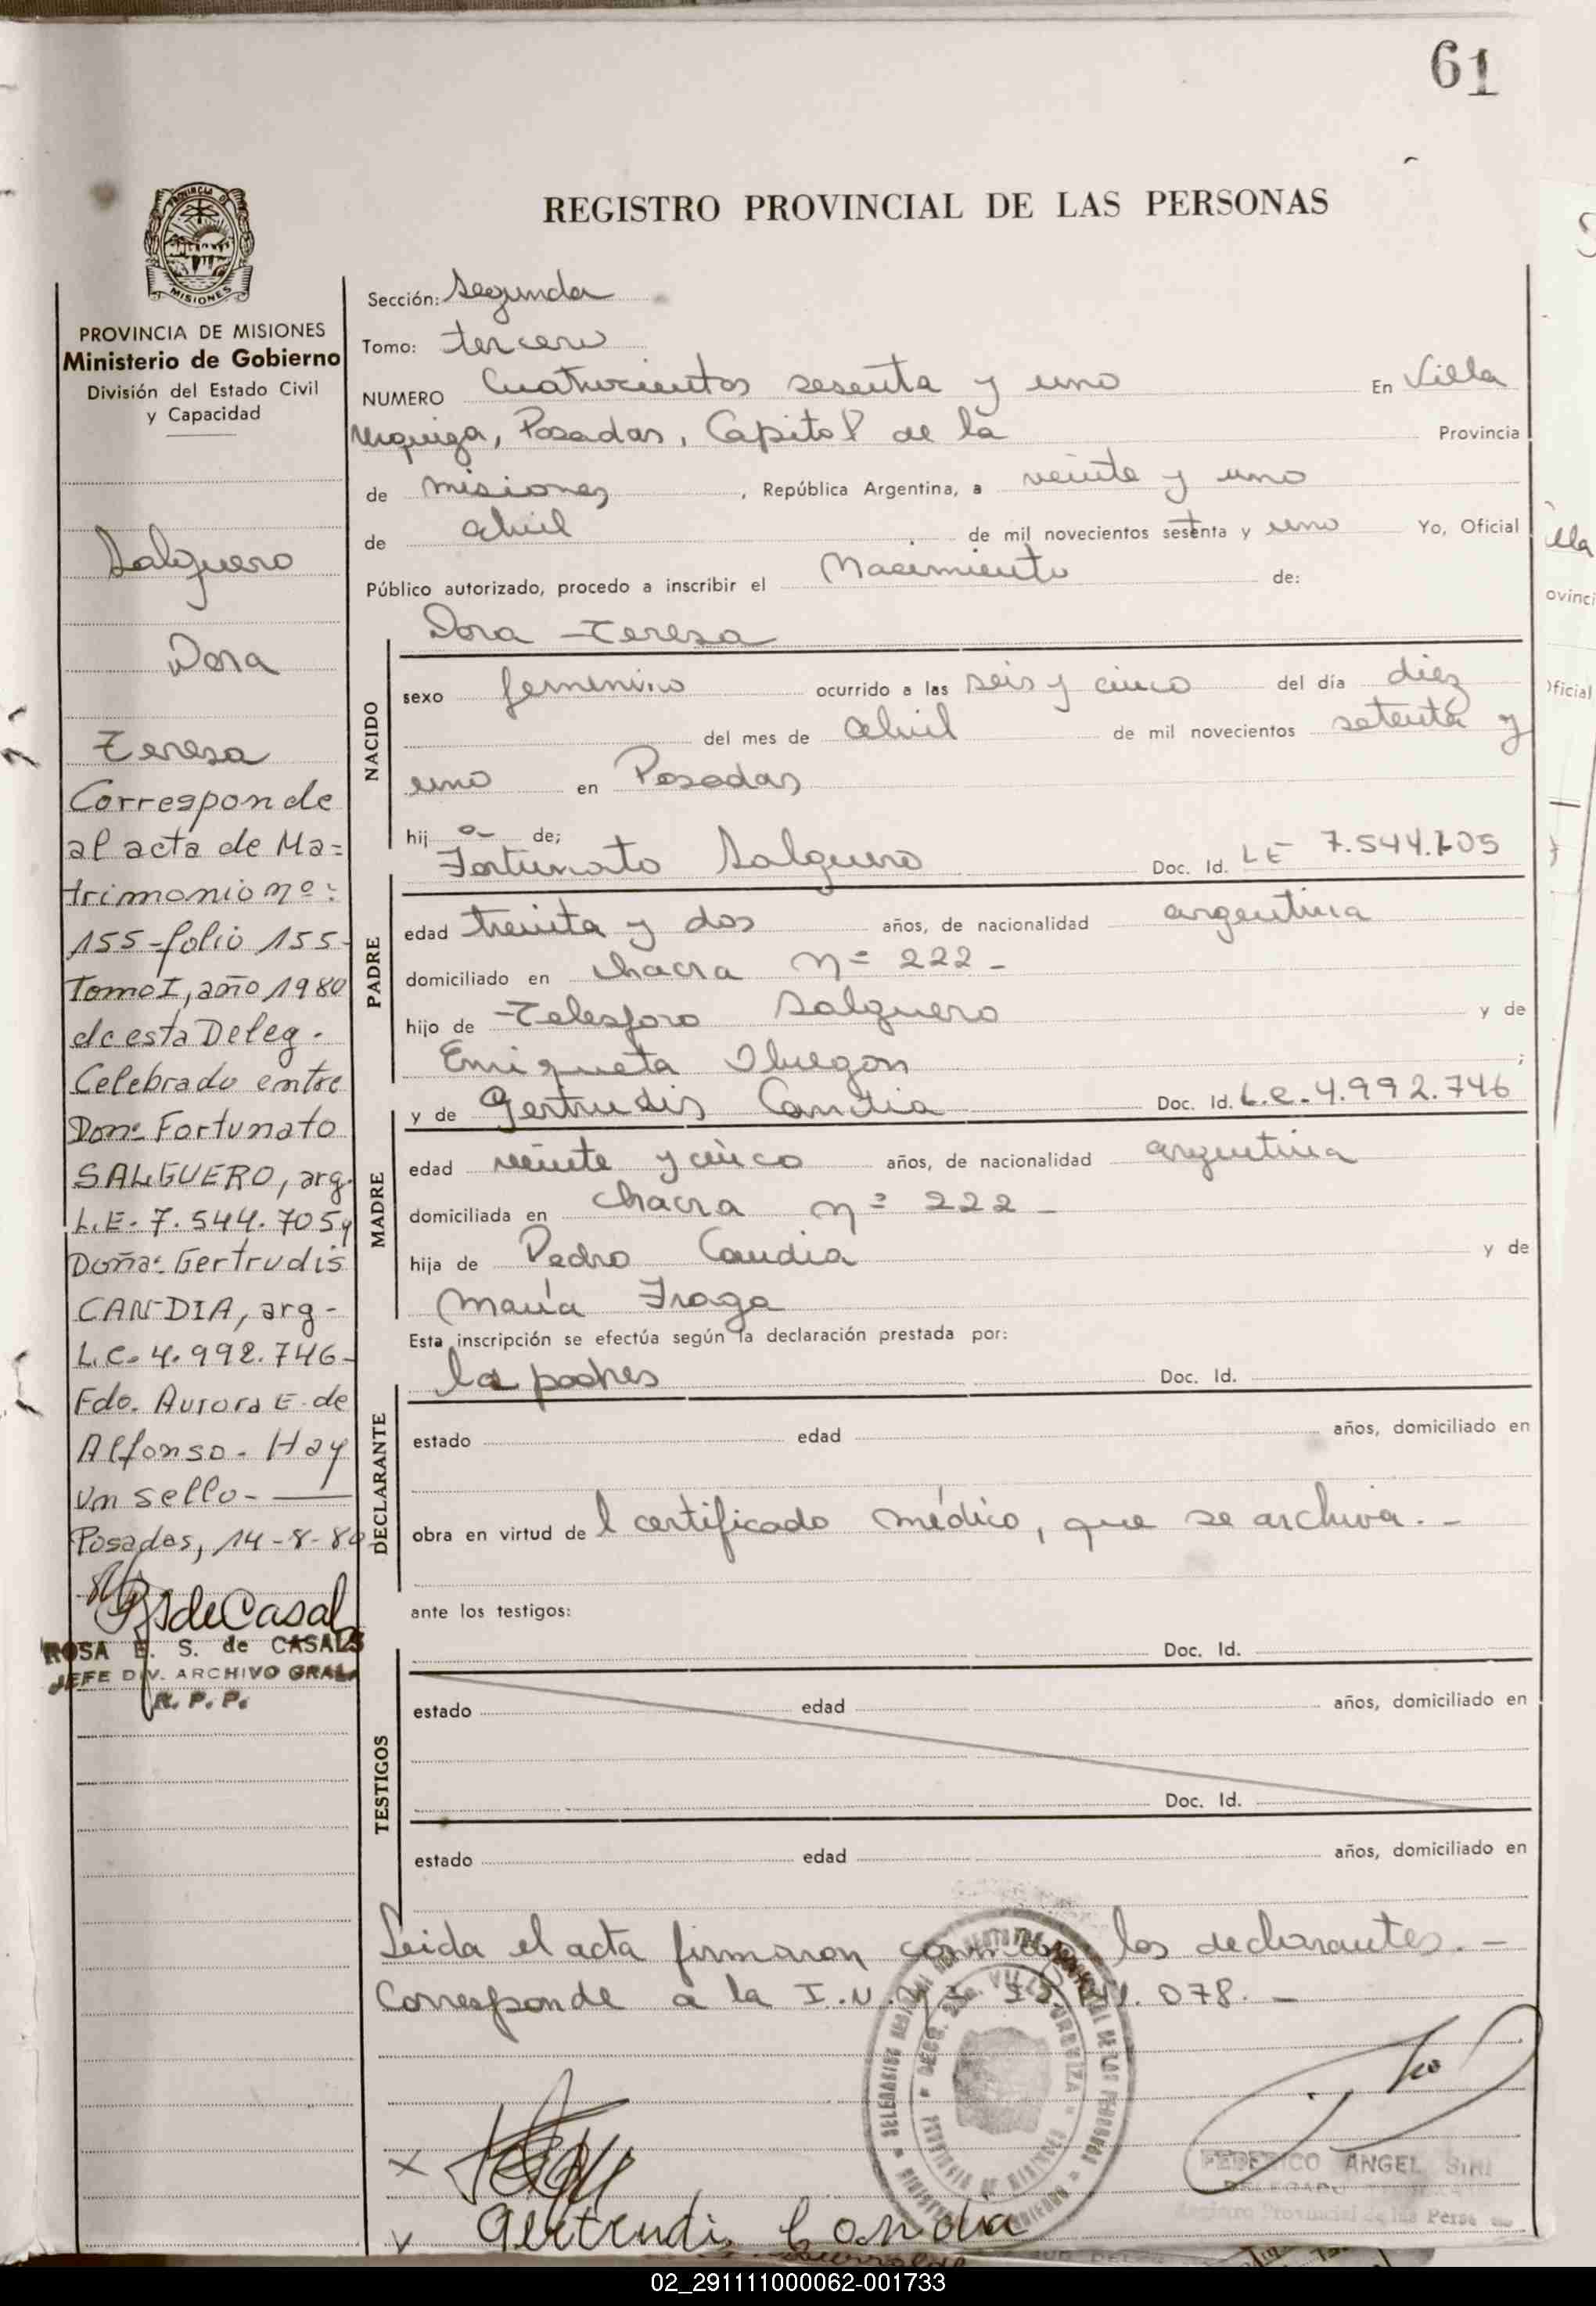 61
REGISTRO PROVINCIAL DE LAS PERSONAS
PROVINCIA DE MISIONES
Ministerio de Gobierno
División del Estado Civil
y Capacidad
Salguero
Dora
Teresa
Corresponde
al acta de Ma=
trimonio nº:
155-folio 155-
Tomo I, año 1980
de esta Deleg.
Celebrado entre
Don: Fortunato
SALGUERO, arg.
L.E. 7.544.705 y
Doña: Gertrudis
CANDIA, arg-
L.C. 4.992.746-
Fdo. Aurora E. de
Alfonso. Hay
un sello-
Posadas, 14-8-80
ROSA E. S. de CASALS
JEFE DIV. ARCHIVO GRAL.
R. P. P.
Sección: Segunda
Tomo: tercero
NUMERO Cuatrocientos sesenta y uno En Villa
Urquiza, Posadas, Capital de la Provincia
de Misiones, República Argentina, a veinte y uno
de abril de mil novecientos sesenta y uno Yo, Oficial
Público autorizado, procedo a inscribir el Nacimiento de:
Dora Teresa
NACIDO
sexo femenino ocurrido a las seis y cinco del día diez
del mes de abril de mil novecientos setenta y
uno en Posadas
hija de;
Fortunato Salguero Doc. Id. LE 7.544.705
PADRE
edad treinta y dos años, de nacionalidad argentina
domiciliado en chacra nº 222 -
hijo de Telesforo Salguero y de
Enriqueta Obregon ;
y de Gertrudis Candia Doc. Id. L.C. 4.992.746
MADRE
edad veinte y cinco años, de nacionalidad argentina
domiciliada en chacra nº 222 -
hija de Pedro Candia y de
María Fraga
Esta inscripción se efectúa según la declaración prestada por:
los padres Doc. Id.
DECLARANTE
estado edad años, domiciliado en
obra en virtud del certificado médico, que se archiva. -
ante los testigos:
Doc. Id.
TESTIGOS
estado edad años, domiciliado en
Doc. Id.
estado edad años, domiciliado en
Leida el acta firmaron conmigo los declarantes. -
Corresponde a la I.N. 078. -
FEDERICO ANGEL SIRI
Registro Provincial de las Personas
x
Gertrudi Candia
02_291111000062-001733